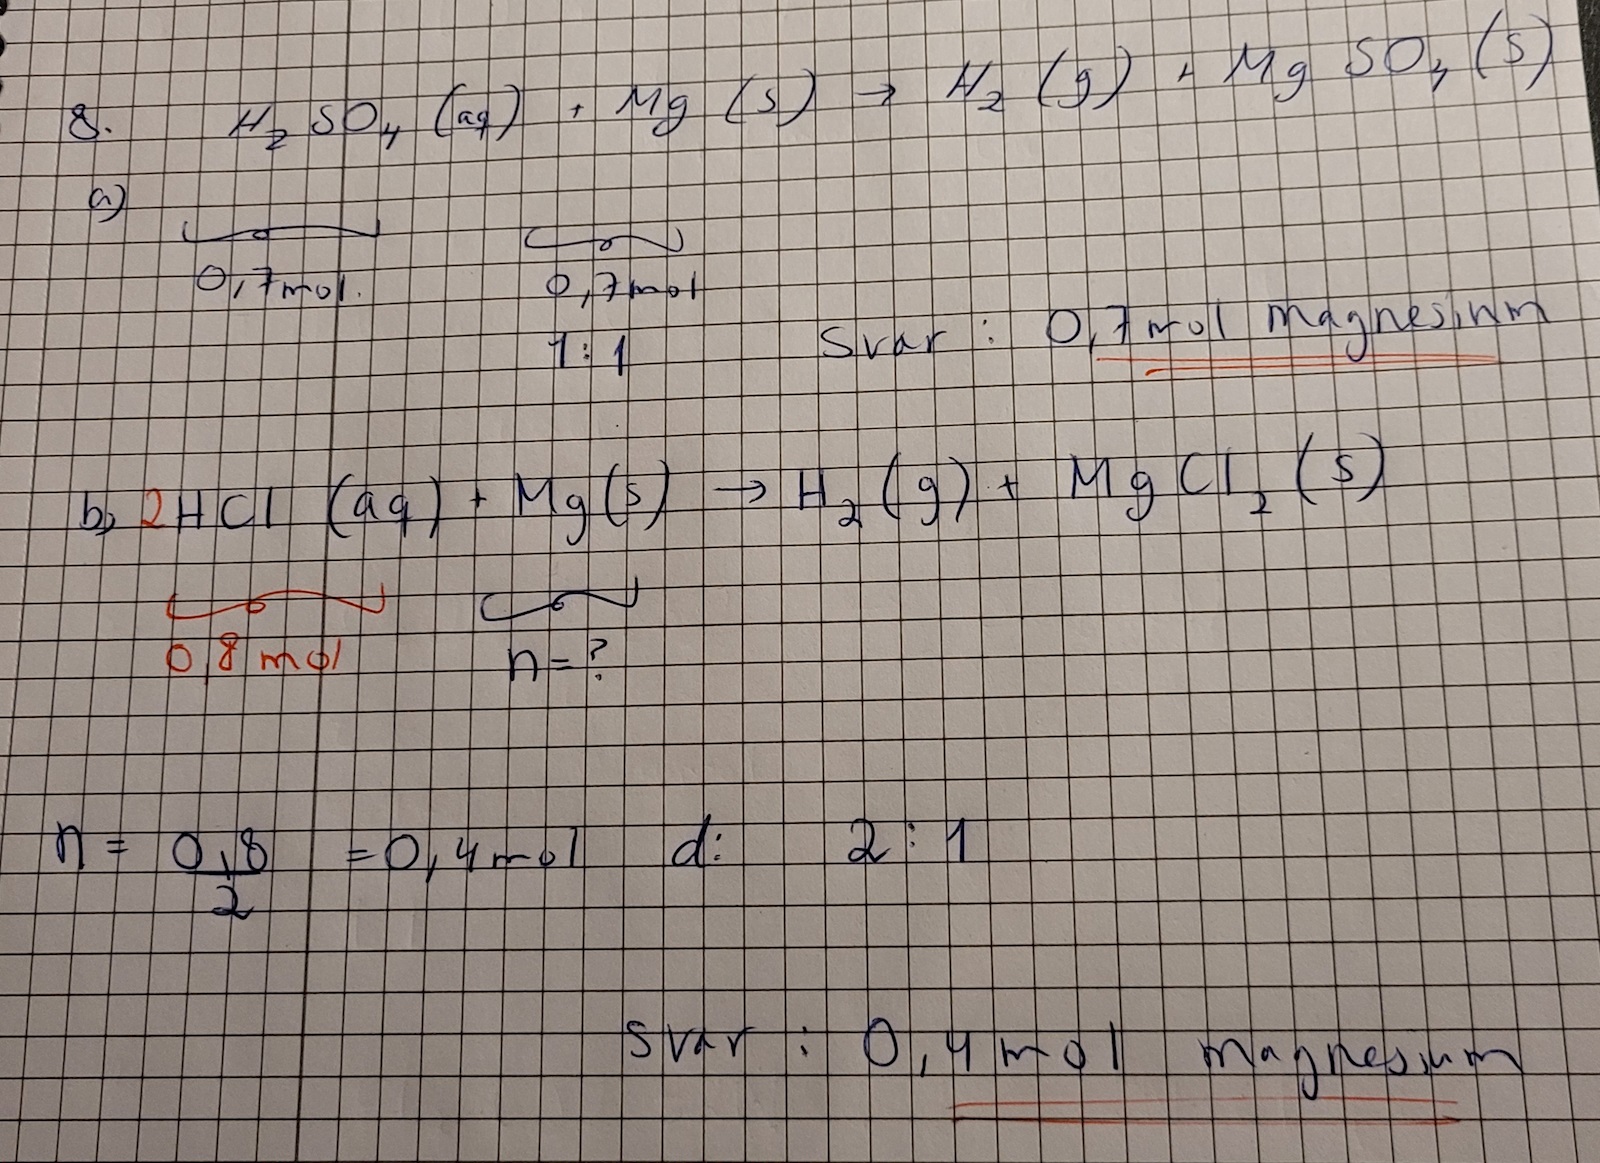 8. H₂SO₄ (aq) + Mg (s) → H₂ (g) + MgSO₄ (s)
a)
0,7 mol. 0,7 mol
1:1 Svar : 0,7 mol magnesium
b) 2HCl (aq) + Mg (s) → H₂ (g) + MgCl₂ (s)
0,8 mol n = ?
n = 0,8/2 = 0,4 mol d: 2:1
Svar : 0,4 mol magnesium